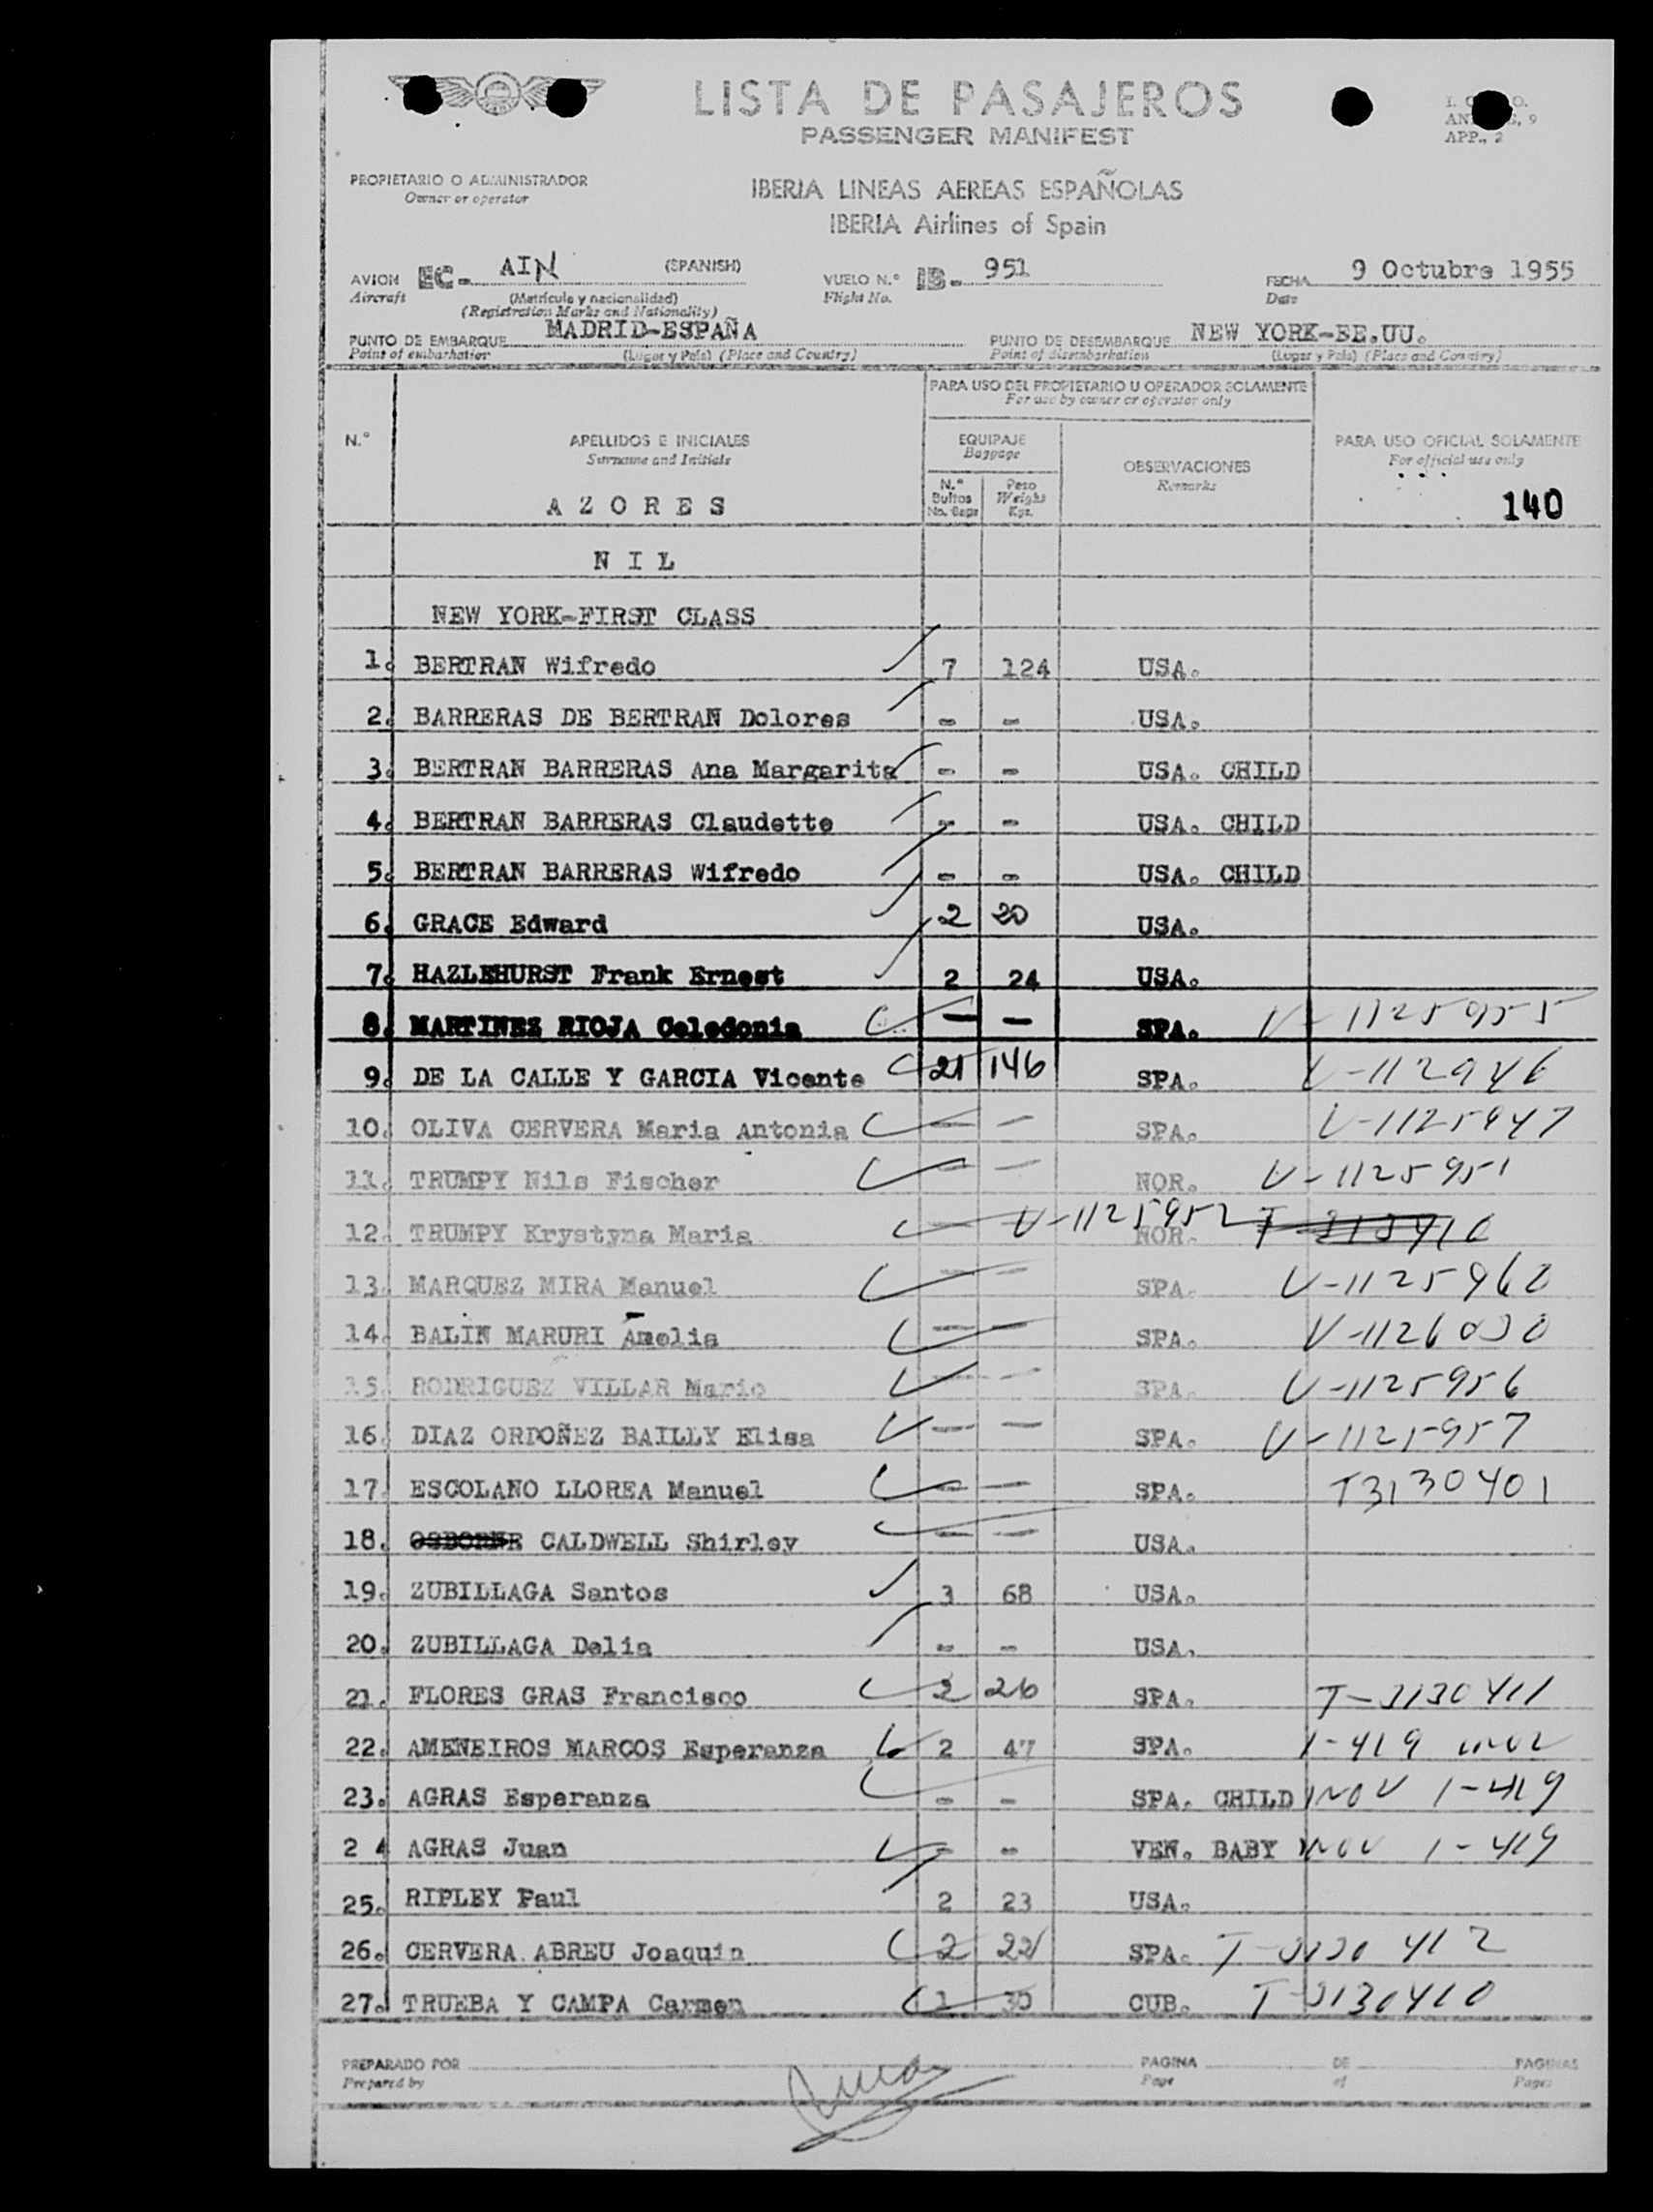 LISTA DE PASAJEROS
PASSENGER MANIFEST
APP., 2
PROPIETARIO O ADMINISTRADOR
Owner or operator
IBERIA LINEAS AEREAS ESPAÑOLAS
IBERIA Airlines of Spain
AVION EC- AIN (SPANISH) VUELO N.° IB- 951 FECHA 9 Octubre 1955
Aircraft (Matrícula y nacionalidad) Flight No. Date
(Registration Marks and Nationality)
PUNTO DE EMBARQUE MADRID-ESPAÑA PUNTO DE DESEMBARQUE NEW YORK-EE.UU.
Point of embarkation (Lugar y País) (Place and Country) Point of disembarkation (Lugar y País) (Place and Country)
PARA USO DEL PROPIETARIO U OPERADOR SOLAMENTE
For use by owner or operator only
N.° APELLIDOS E INICIALES EQUIPAJE OBSERVACIONES PARA USO OFICIAL SOLAMENTE
Surname and Initials Baggage Remarks For official use only
N.° Bultos No. Bags Peso Weight Kgs.
AZORES 140
NIL
NEW YORK-FIRST CLASS
1. BERTRAN Wifredo 7 124 USA.
2. BARRERAS DE BERTRAN Dolores - - USA.
3. BERTRAN BARRERAS Ana Margarita - - USA. CHILD
4. BERTRAN BARRERAS Claudette - - USA. CHILD
5. BERTRAN BARRERAS Wifredo - - USA. CHILD
6. GRACE Edward 2 20 USA.
7. HAZLEHURST Frank Ernest 2 24 USA.
8. MARTINEZ RIOJA Celedonia - - SPA. V-1125955
9. DE LA CALLE Y GARCIA Vicente 21 146 SPA. V-112946
10. OLIVA CERVERA Maria Antonia - - SPA. V-1125947
11. TRUMPY Nils Fischer - - NOR. V-1125951
12. TRUMPY Krystyna Maria - V-1125952 NOR.
13. MARQUEZ MIRA Manuel - - SPA. V-1125960
14. BALIN MARURI Amelia - - SPA. V-1126030
15. RODRIGUEZ VILLAR Mario - - SPA. V-1125956
16. DIAZ ORDOÑEZ BAILLY Elisa - - SPA. V-1125957
17. ESCOLANO LLOREA Manuel - - SPA. T3130401
18. OSBORNE CALDWELL Shirley - - USA.
19. ZUBILLAGA Santos 3 68 USA.
20. ZUBILLAGA Delia - - USA.
21. FLORES GRAS Francisco 2 26 SPA. T-3130411
22. AMENEIROS MARCOS Esperanza 2 47 SPA. 1-419
23. AGRAS Esperanza - - SPA. CHILD 1-419
24 AGRAS Juan - - VEN. BABY 1-419
25. RIPLEY Paul 2 23 USA.
26. CERVERA ABREU Joaquin 2 22 SPA. T-3130412
27. TRUEBA Y CAMPA Carmen 1 30 CUB. T-3130410
PREPARADO POR PAGINA DE PAGINAS
Prepared by Page of Pages